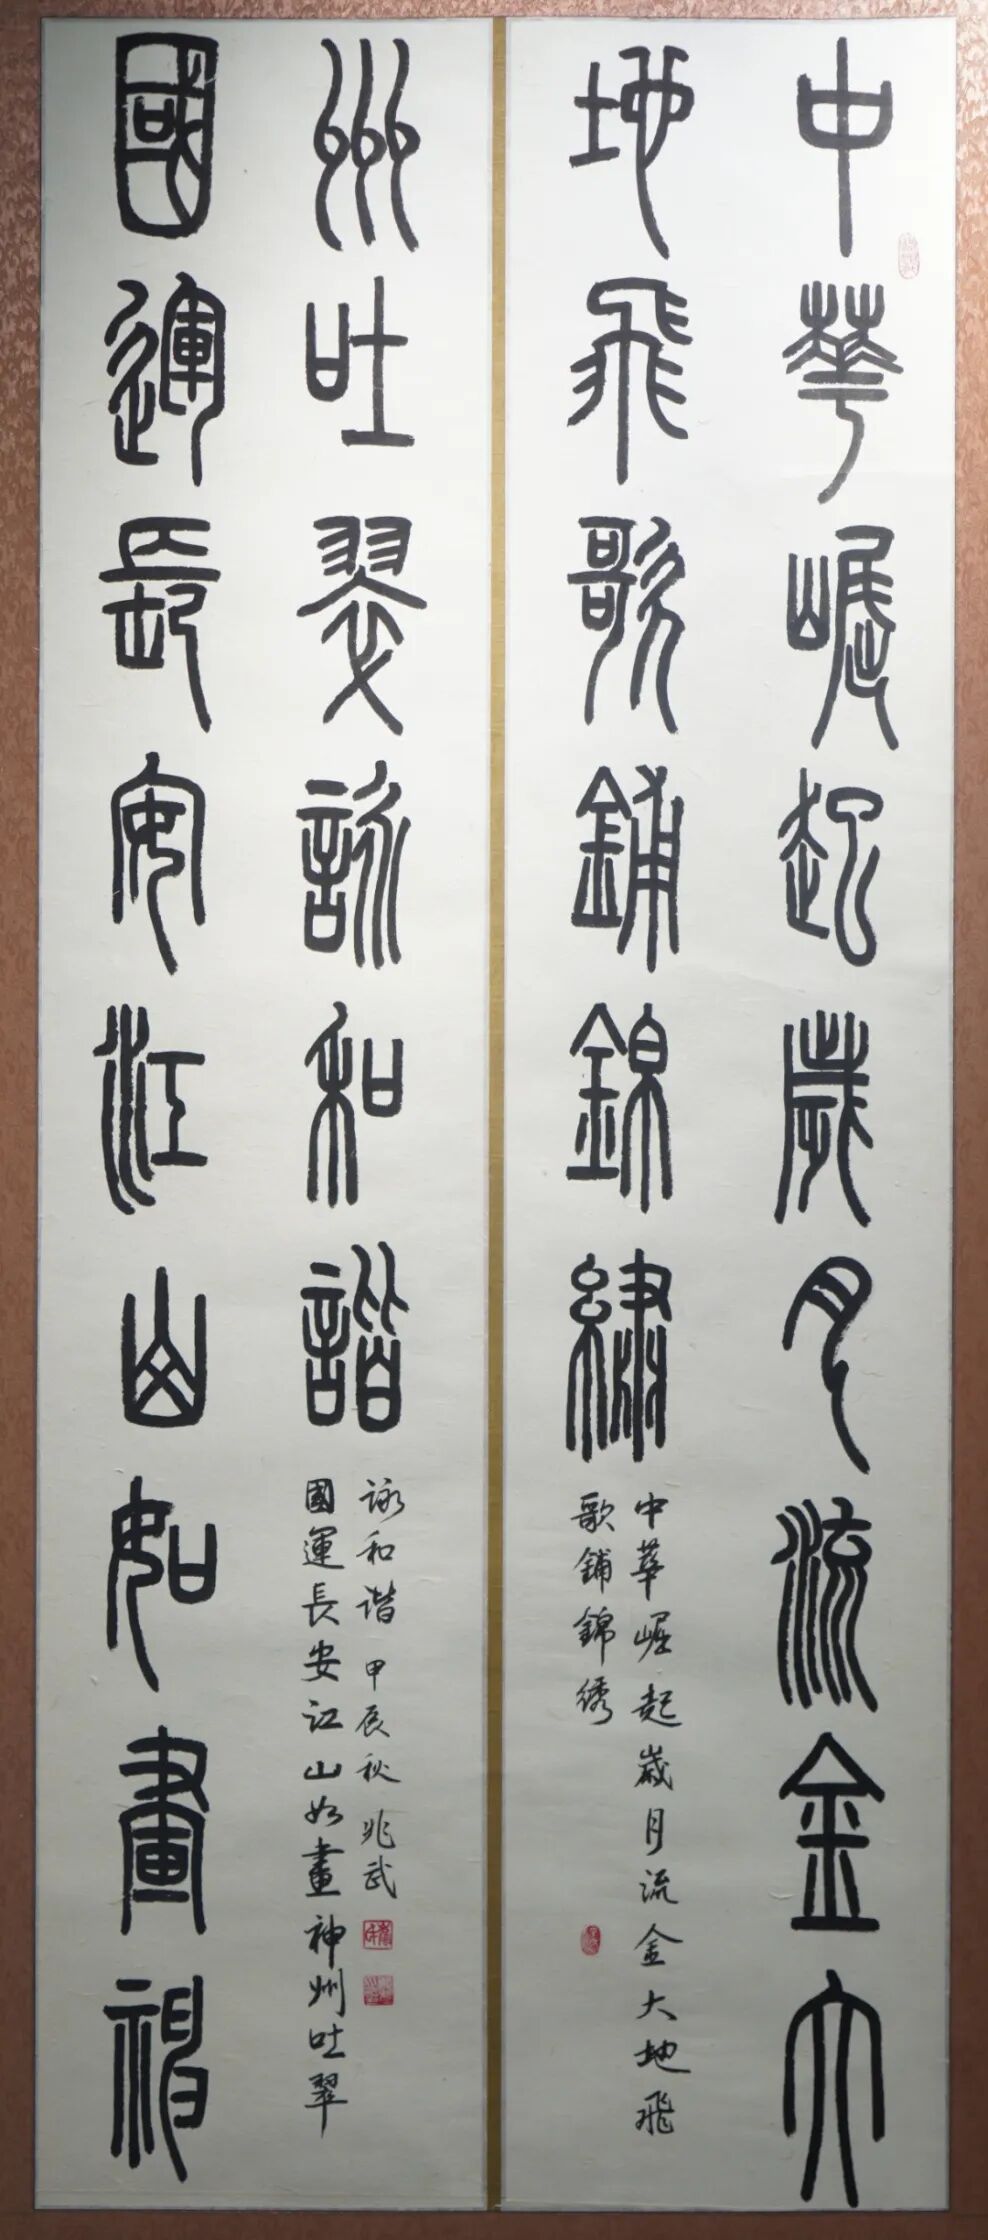 中華崛起歲月流金大
地飛歌鋪錦繡
中華崛起歲月流金大地飛
歌鋪錦绣
國運長安江山如畫神
州吐翠詠和諧
國運長安江山如畫神州吐翠
詠和谐 甲辰秋 兆武